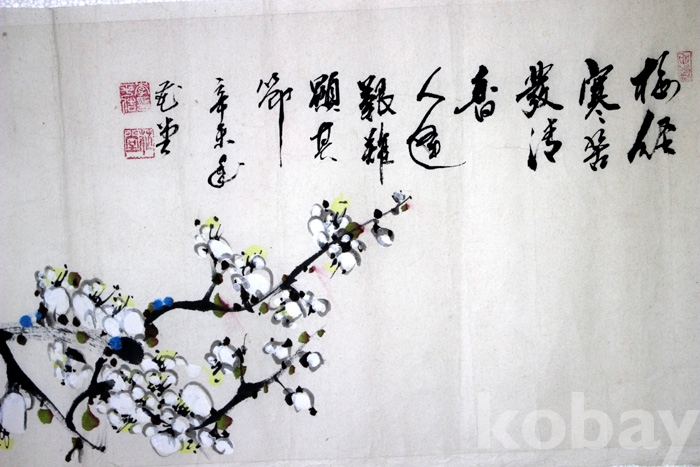 梅經
寒苦
發淸
香
人逢
艱難
顯其
節
辛未年
kobay